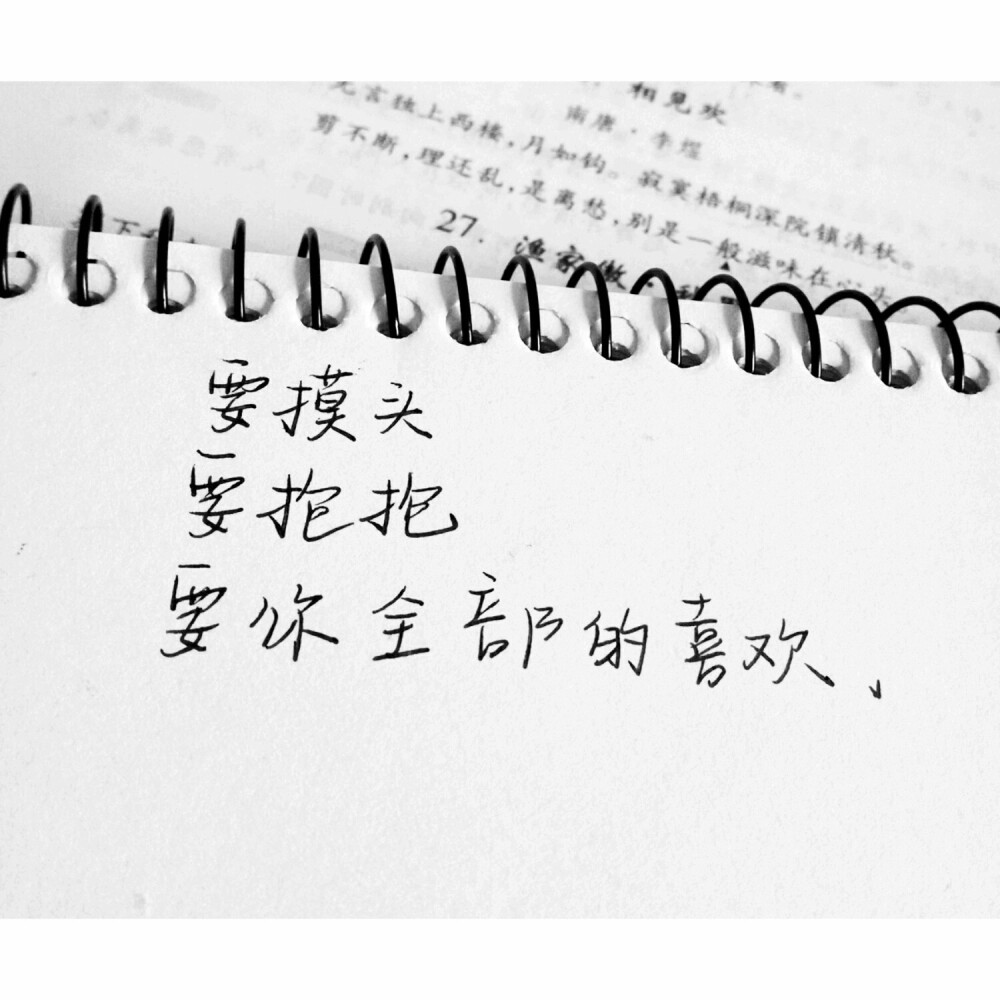 相見欢
南唐·李煜
无言独上西楼,月如钩。寂寞梧桐深院锁清秋。
剪不断,理还乱,是离愁,别是一般滋味在心头
27. 渔家傲·秋思
要摸头
要抱抱
要你全部的喜欢、